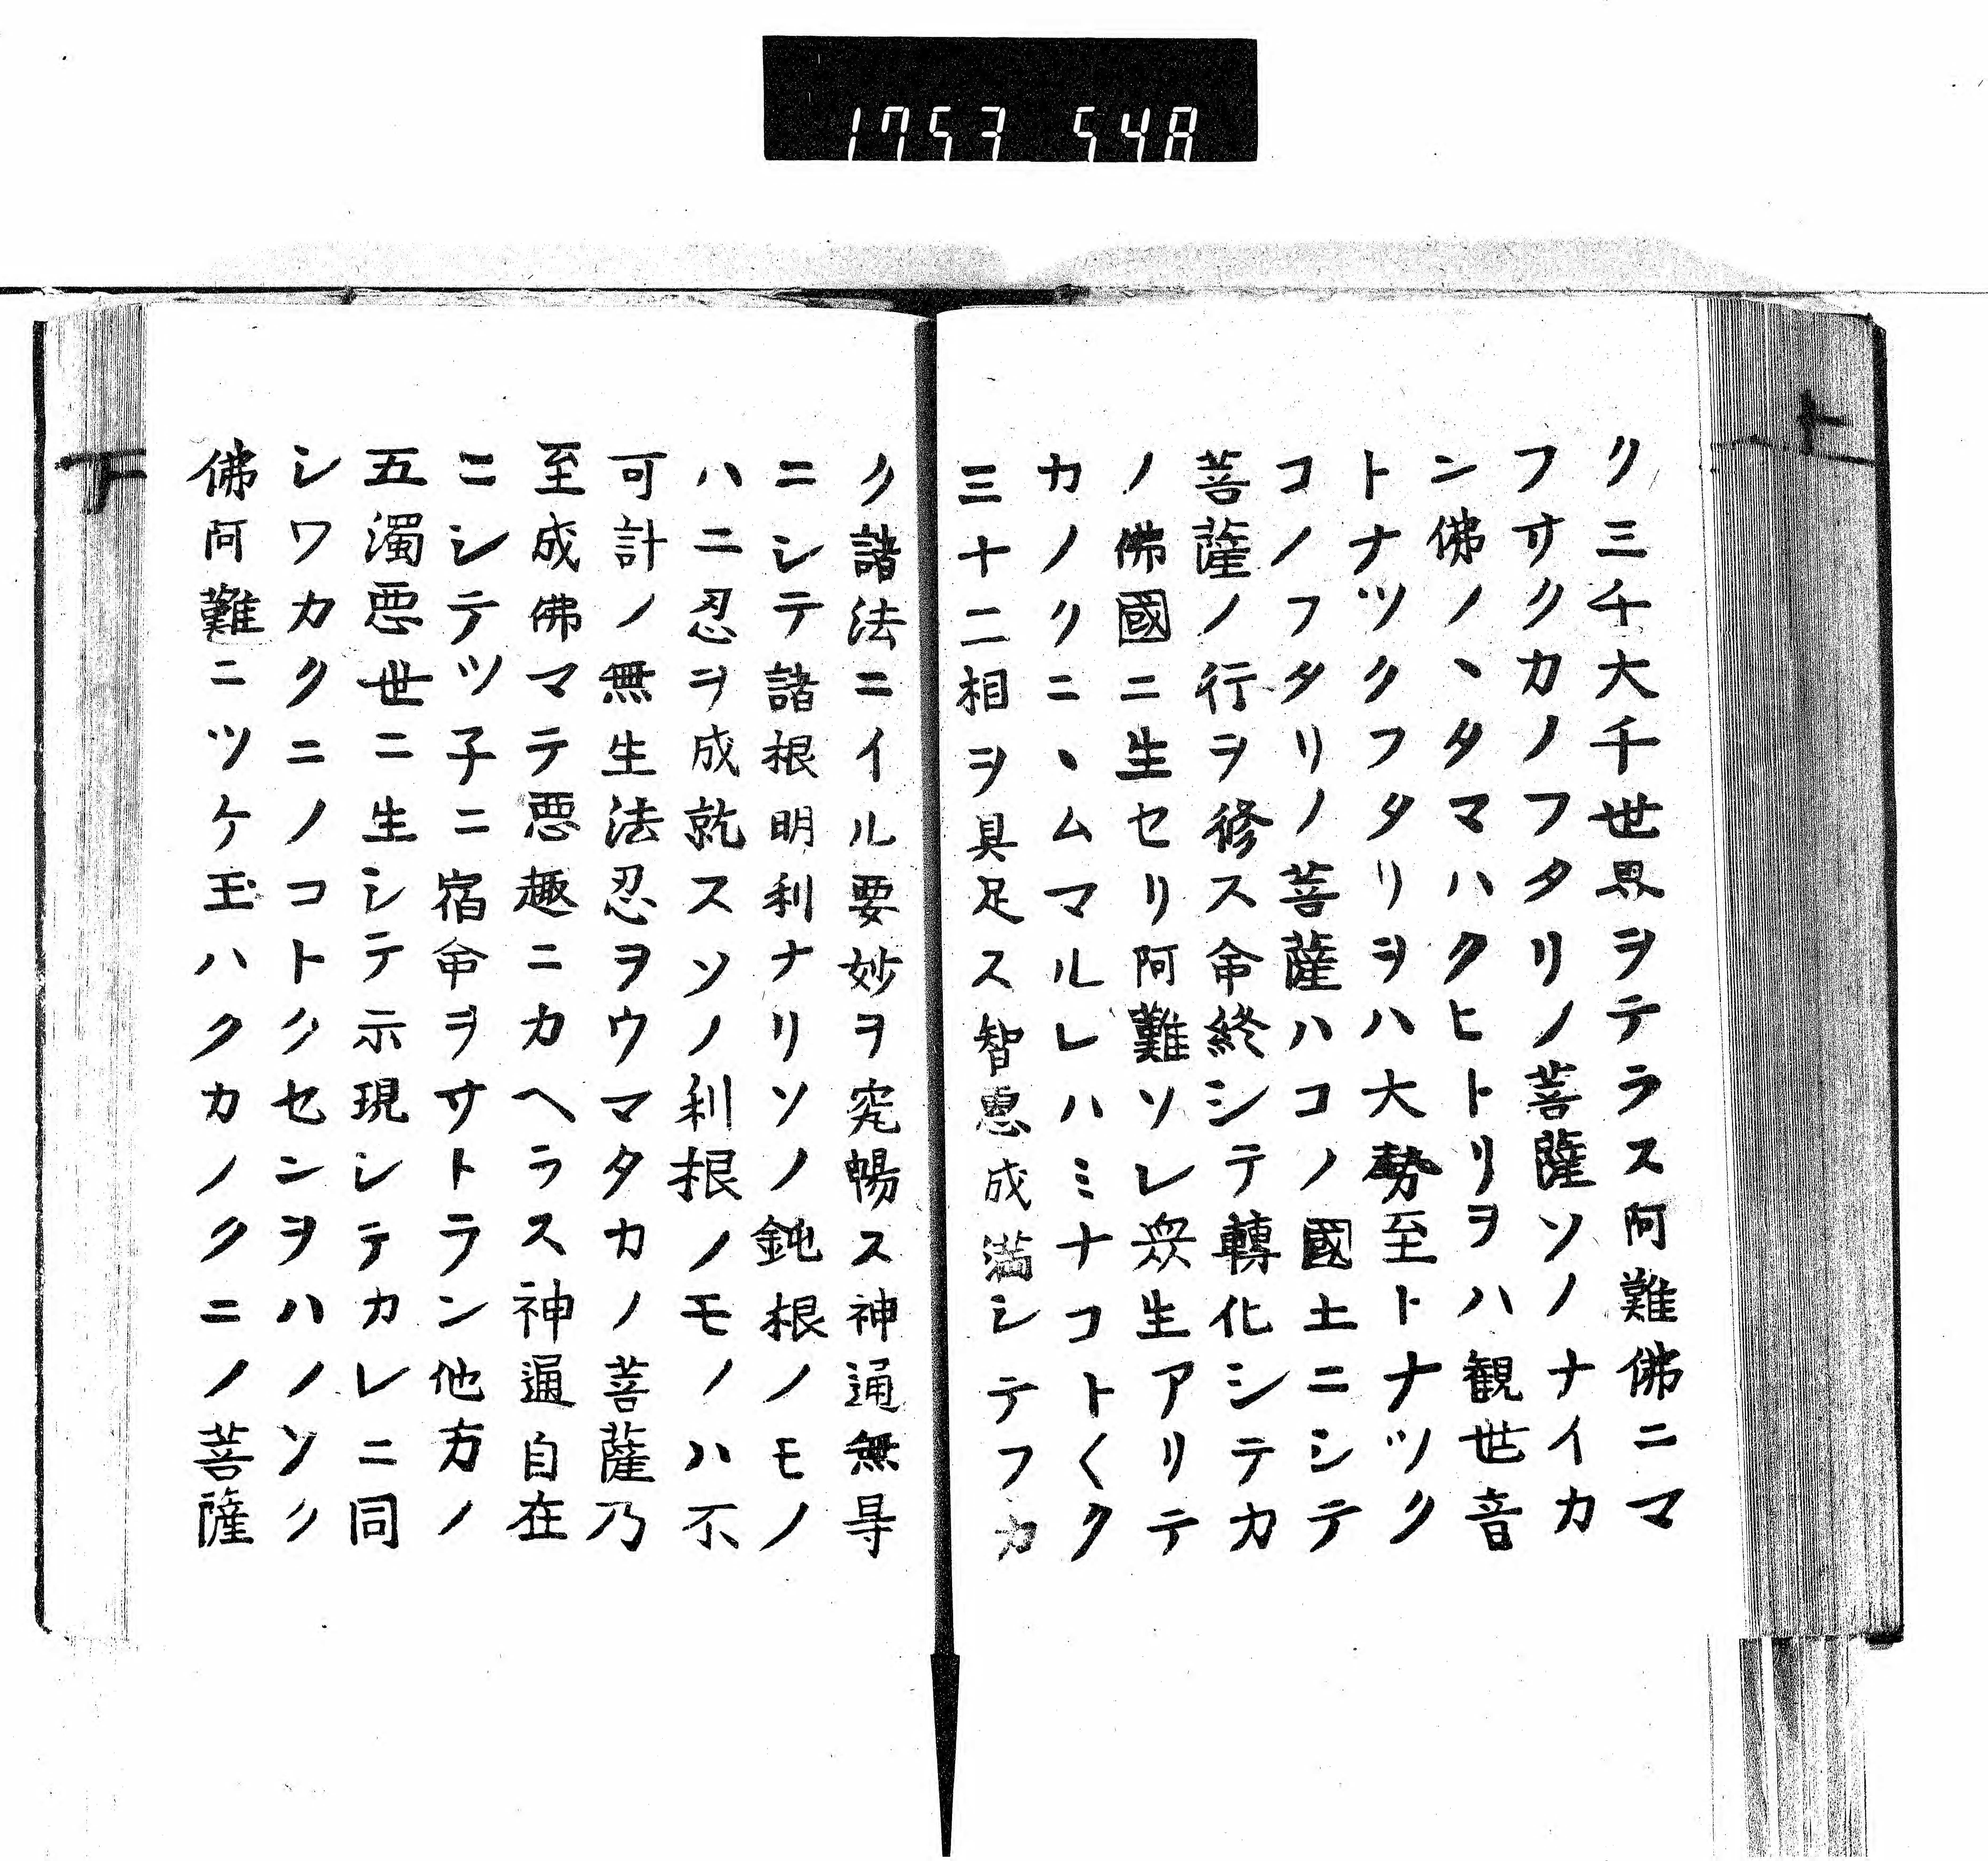 1753 548
ク三千大千世界ヲテラス阿難佛ニマ
フサクカノフタリノ菩薩ソノナイカ
ン佛ノヽタマハクヒトリヲハ観世音
トナツクフタリヲハ大勢至トナツク
コノフタリノ菩薩ハコノ國土ニシテ
菩薩ノ行ヲ修ス命終シテ轉化シテカ
ノ佛國ニ生セリ阿難ソレ衆生アリテ
カノクニヽムマルレハミナコトくク
三十二相ヲ具足ス智恵成満シテフカ
ク諸法ニイル要妙ヲ究暢ス神通無㝵
ニシテ諸根明利ナリソノ鈍根ノモノ
ハ二忍ヲ成就スソノ利根ノモノハ不
可計ノ無生法忍ヲウマタカノ菩薩乃
至成佛マテ悪趣ニカヘラス神通自在
ニシテツ子ニ宿命ヲサトラン他方ノ
五濁悪世ニ生シテ示現シテカレニ同
シワカクニノコトクセンヲハノソク
佛阿難ニツケ玉ハクカノクニノ菩薩